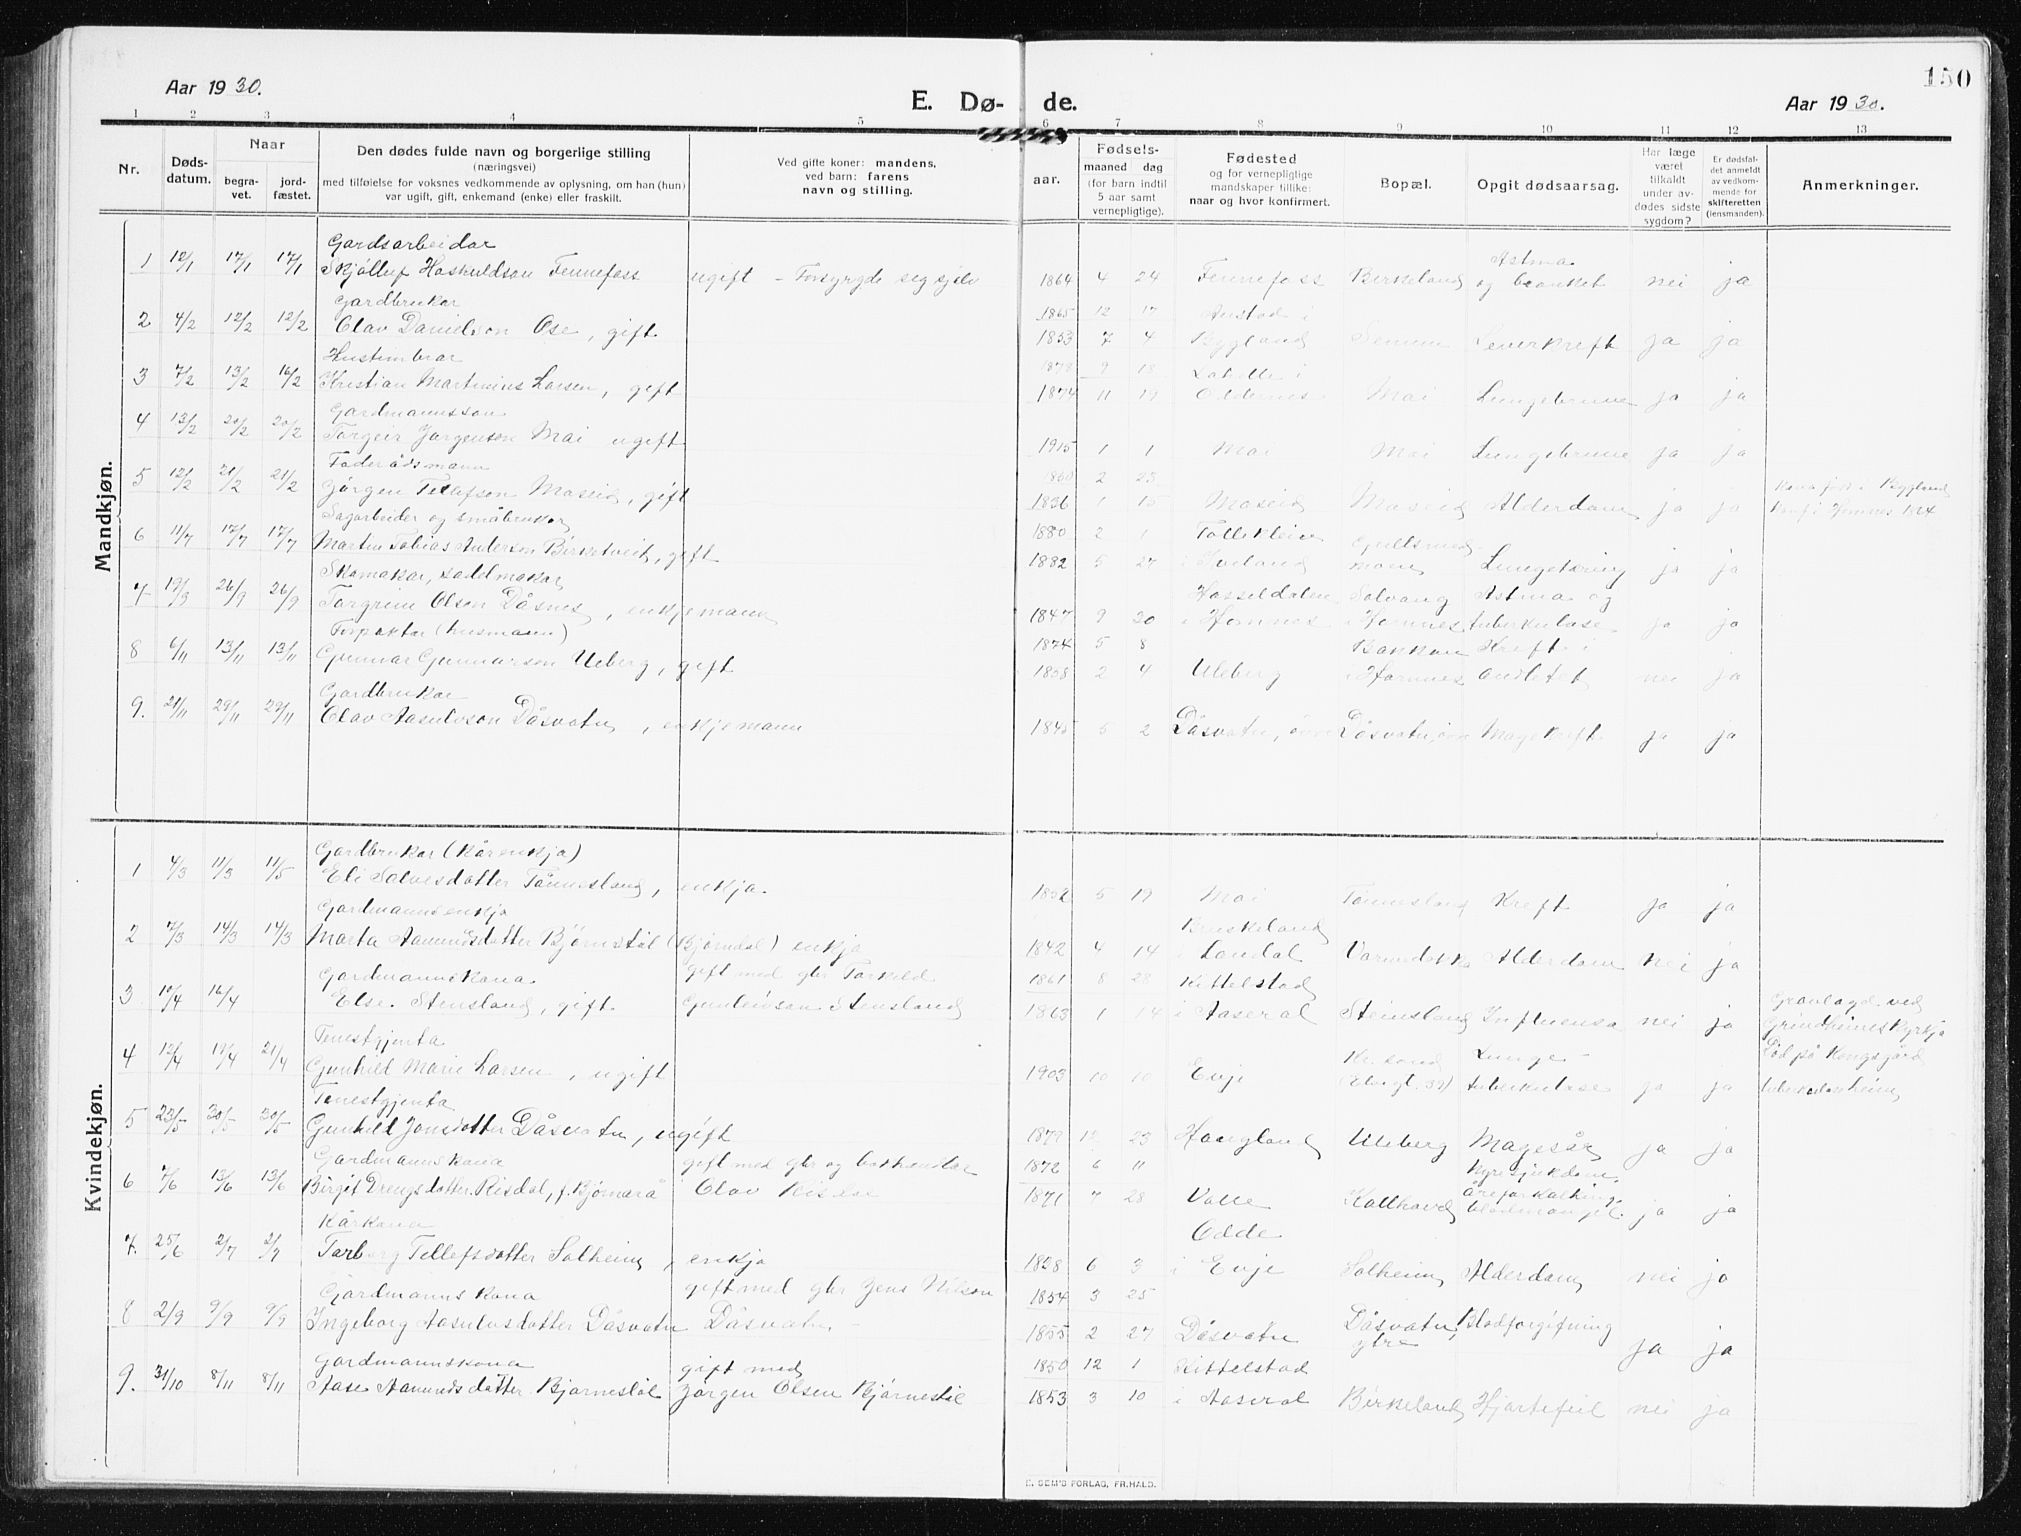 150
Aar 1930.
E. Dø- de.
Aar 1930.
1 2 3 4 5 6 7 8 9 10 11 12 13
Nr.
Dødsdatum.
Naar
begravet.
jordfæstet.
Den dødes fulde navn og borgerlige stilling
(næringsvei)
med tilføielse for voksnes vedkommende av oplysning, om han (hun)
var ugift, gift, enkemand (enke) eller fraskilt.
Ved gifte koner: mandens,
ved barn: farens
navn og stilling.
Fødsels-
aar.
maaned dag
(for barn indtil
5 aar samt
vernepligtige).
Fødested
og for vernepligtige
mandskaper tillike:
naar og hvor konfirmert.
Bopæl.
Opgit dødsaarsag.
Har læge
været
tilkaldt
under av-
dødes sidste
sygdom?
Er dødsfal-
det anmeldt
av vedkom-
mende for
skifteretten
(lensmanden).
Anmerkninger.
Mandkjøn.
Gardsarbeidar
1 12/1 17/1 17/1 Skjøllup Hoskuldson Fennefoss ugift - Forsyrgde seg sjølv 1864 4 24 Fennefoss Birkeland Astma og bronket nei ja
Gardbrukar
2 4/2 12/2 12/2 Olav Danielson Ose, gift
1865 12 17 Austad i
1853 7 4 Bygland Senum Leverkreft ja ja
Hustimbrar
3 7/2 13/2 16/2 Kristian Martinius Larsen, gift
1878 9 18
1874 11 19 Oddernes Mai Lungebrune ja ja
Gardmannsson
4 13/2 20/2 20/2 Torgeir Jørgenson Mai ugift
1915 1 1 Mai Mai Lungebrune ja ja
Føderådsmann
5 12/2 21/2 21/2 Jørgen Tellefson Moseid, gift
1860 2 25
1836 1 15 Moseid Moseid Alderdom ja ja
Kona fødd i Bygland
Sagarbeider og småbrukar
6 11/7 17/7 17/7 Martin Tobias Anderson Birketveit, gift
1880 2 1
1882 5 27 i Iveland Lungetæring ja ja
Skomakar, sadelmakar
7 19/9 26/9 26/9 Torgrim Olson Dåsnes, enkjemann
Hosseldalen Solvang Astma og
1847 9 20 i Hornnes i Hornnes tuberkulose ja ja
Torpaktar (husmann)
8 6/11 13/11 13/11 Gunnar Gunnarson Uleberg, gift
1874 5 8 Bakkan Kreft i
1858 2 4 Uleberg i Hornnes andletet nei ja
Gardbrukar
9. 21/11 29/11 29/11 Olav Aasulvson Dåsvatn, enkjemann
1845 5 2 Dåsvatn, Dåsvatn, Magekreft ja ja
Kvindekjøn.
Gardbrukar (kårenkja)
1 4/3 11/3 11/5 Eli Salvesdotter Tønnesland, enkja.
1852 5 19 Mai Tønnesland Kreft ja ja
Gardmannsenkja
2 7/3 14/3 14/3 Marta Aamundsdotter Bjørnstøl (Bjørndal) enkja
Bruskeland
1842 4 14 i Laudal Alderdom nei ja
Gardmannskona gift med gbr Torkild
3 10/4 16/4 Else Stensland, gift Gunleivson Stensland
1861 8 28 Kittelstad
1863 1 14 i Aaseral Steinsland Influensa nei ja
Gravlagd ved
Grindheimskyrkja
Tenestgjenta
4 12/4 19/4 21/4 Gunhild Marie Larsen, ugift
Kr. sand Lunge-
1903 10 10 Evje tuberkulose ja ja
Død på Kongsgård
tuberkuloseheim
Tenestgjenta
5 23/5 30/5 30/5 Gunhild Jonsdotter Dåsvatn, ugift
23 Haugland Uleberg Magesår ja ja
Gardmannskona gift med gbr og
6 7/6 13/6 13/6 Birgit Drengsdotter Risdal, f. Bjørnarå Olav Risdal
1872 6 11
1871 7 28 Valle Katthovd Åreforkalking blodmangel. ja ja
Kårkona
7. 25/6 2/7 2/7 Torborg Tellefsdotter Solheim, enkja
Odde
1828 6 3 i Evje Solheim Alderdom nei ja
Gardmannskona gift med gbr Jens Nilson
8 2/9 9/9 9/9 Ingeborg Aasulvsdotter Dåsvatn Dåsvatn
1854 3 25
1855 2 27 Dåsvatn Dåsvatn, ytre Blodforgifning ja ja
Gardmannskona gift med
9. 31/10 8/11 8/11 Aase Aamundsdotter Bjørnestøl Jørgen Olsen Bjørnestøl
1850 12 1 Kittelstad
1853 3 10 i Aaseral Birkeland Hjartefeil nei ja
E. SEM'S FORLAG, FR.HALD.